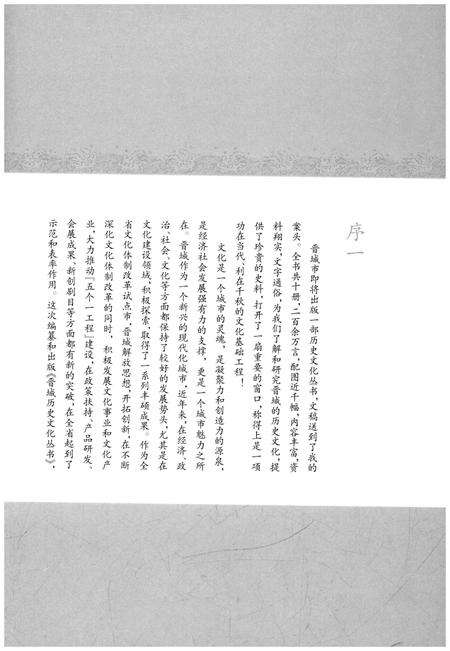 序一
晋城市即将出版一部历史文化丛书，文稿送到了我的
案头。全书共十册，二百余万言，配图近千幅，内容丰富，资
料翔实，文字通俗，为我们了解和研究晋城的历史文化，提
供了珍贵的史料，打开了一扇重要的窗口，称得上是一项
功在当代、利在千秋的文化基础工程！
文化是一个城市的灵魂，是凝聚力和创造力的源泉，
是经济社会发展强有力的支撑，更是一个城市魅力之所
在。晋城作为一个新兴的现代化城市，近年来，在经济、政
治、社会、文化等方面都保持了较好的发展势头，尤其是在
文化建设领域，积极探索，取得了一系列丰硕成果。作为全
省文化体制改革试点市，晋城解放思想，开拓创新，在不断
深化文化体制改革的同时，积极发展文化事业和文化产
业，大力推动“五个一工程”建设，在政策扶持、产品研发、
会展成果、新创剧目等方面都有新的突破，在全省起到了
示范和表率作用。这次编纂和出版《晋城历史文化丛书》，